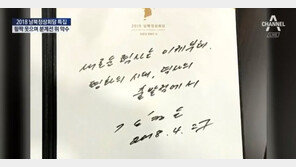 2018 남북정상회담 특집
활짝 웃으며 분계선 위 악수
채널A
새로운 력사는 이제부터.
평화의 시대, 력사의
출발점에서
김정은
2018. 4. 27